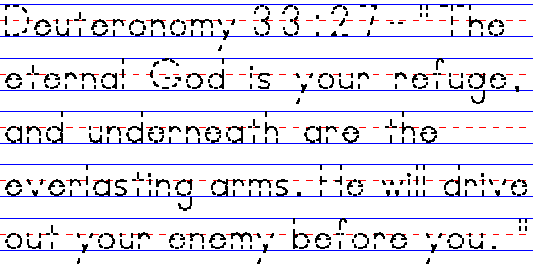 Deuteronomy 33:27-"The
eternal God is your refuge,
and underneath are the
everlasting arms. He will drive
out your enemy before you."